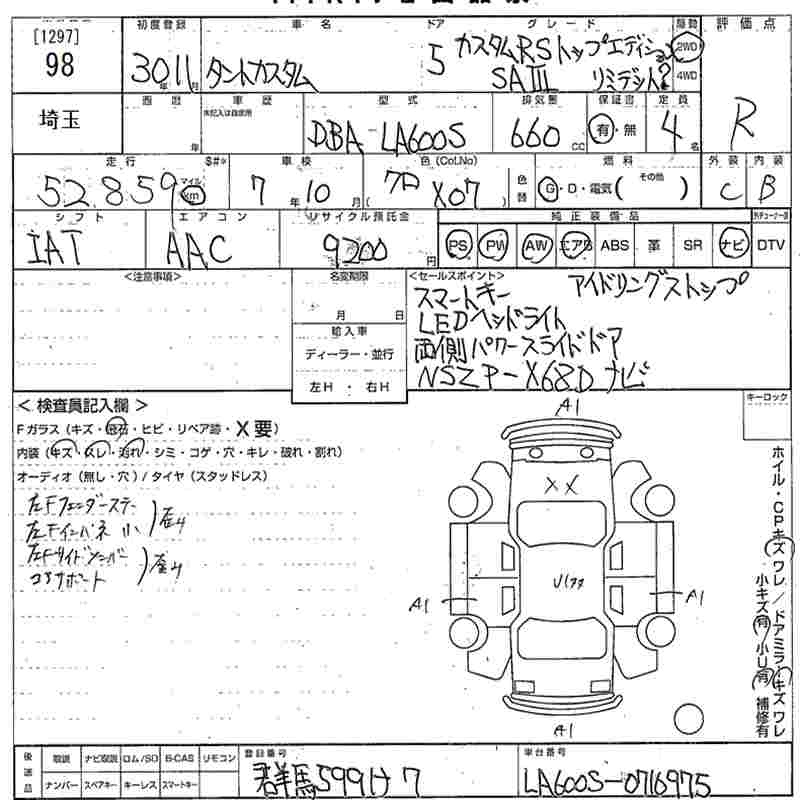 [1297]
98
初度登録 車名 ドア グレード 駆動 評価点
30年11月 タントカスタム 5 カスタムRSトップエディション
SAⅢ リミテッド?
2WD
4WD
埼玉
西暦 車歴 型式 排気量 保証書 定員
未記入は自家用
年 DBA LA600S 660 CC 有・無 4名 R
走行 S#* 車検 色(Col.No) 燃料 外装 内装
52,859 マイル km 7年10月 ( X07 ) 色替 G・D・電気( その他 ) C B
シフト エアコン リサイクル預託金 純正装備品
IAT AAC 9200円 PS PW AW エアB ABS 革 SR ナビ DTV
<注意事項> 名変期限 <セールスポイント>
月 日
輸入車
ディーラー・並行
左H・右H
スマートキー アイドリングストップ
LEDヘッドライト
両側パワースライドドア
NSZP-X68D ナビ
キーロック
< 検査員記入欄 >
Fガラス(キズ・飛石・ヒビ・リペア跡・X要)
内装(キズ・スレ・汚れ・シミ・コゲ・穴・キレ・破れ・割れ)
オーディオ(無し・穴)/タイヤ(スタッドレス)
左Fフェンダーステー
左Fインパネ 小
左Fサイドメンバー
コアサポート
A1
XX
A1
A1
A1
ホイル・CPキズ ワレ / ドアミラーキズ ワレ
小キズ有 小U有 補修有
後送品 取説 ナビ取説 ロム/SD B-CAS リモコン
ナンバー スペアキー キーレス スマートキー
登録番号
群馬 599 け 7
車台番号
LA600S-0716975